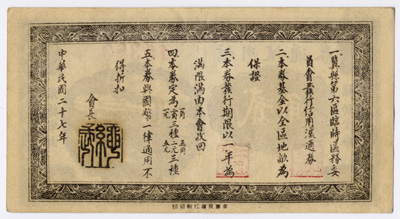 一冀縣第六區臨時區務委
員會發行信用流通券
二本券基金以全區地畝為
保證
三本券發行期限以一年為
滿限滿由本會收回
四本券定為一角二角五角一元二元三種
五本券與國幣一律通用不
得折扣
會長
中華民國二十七年